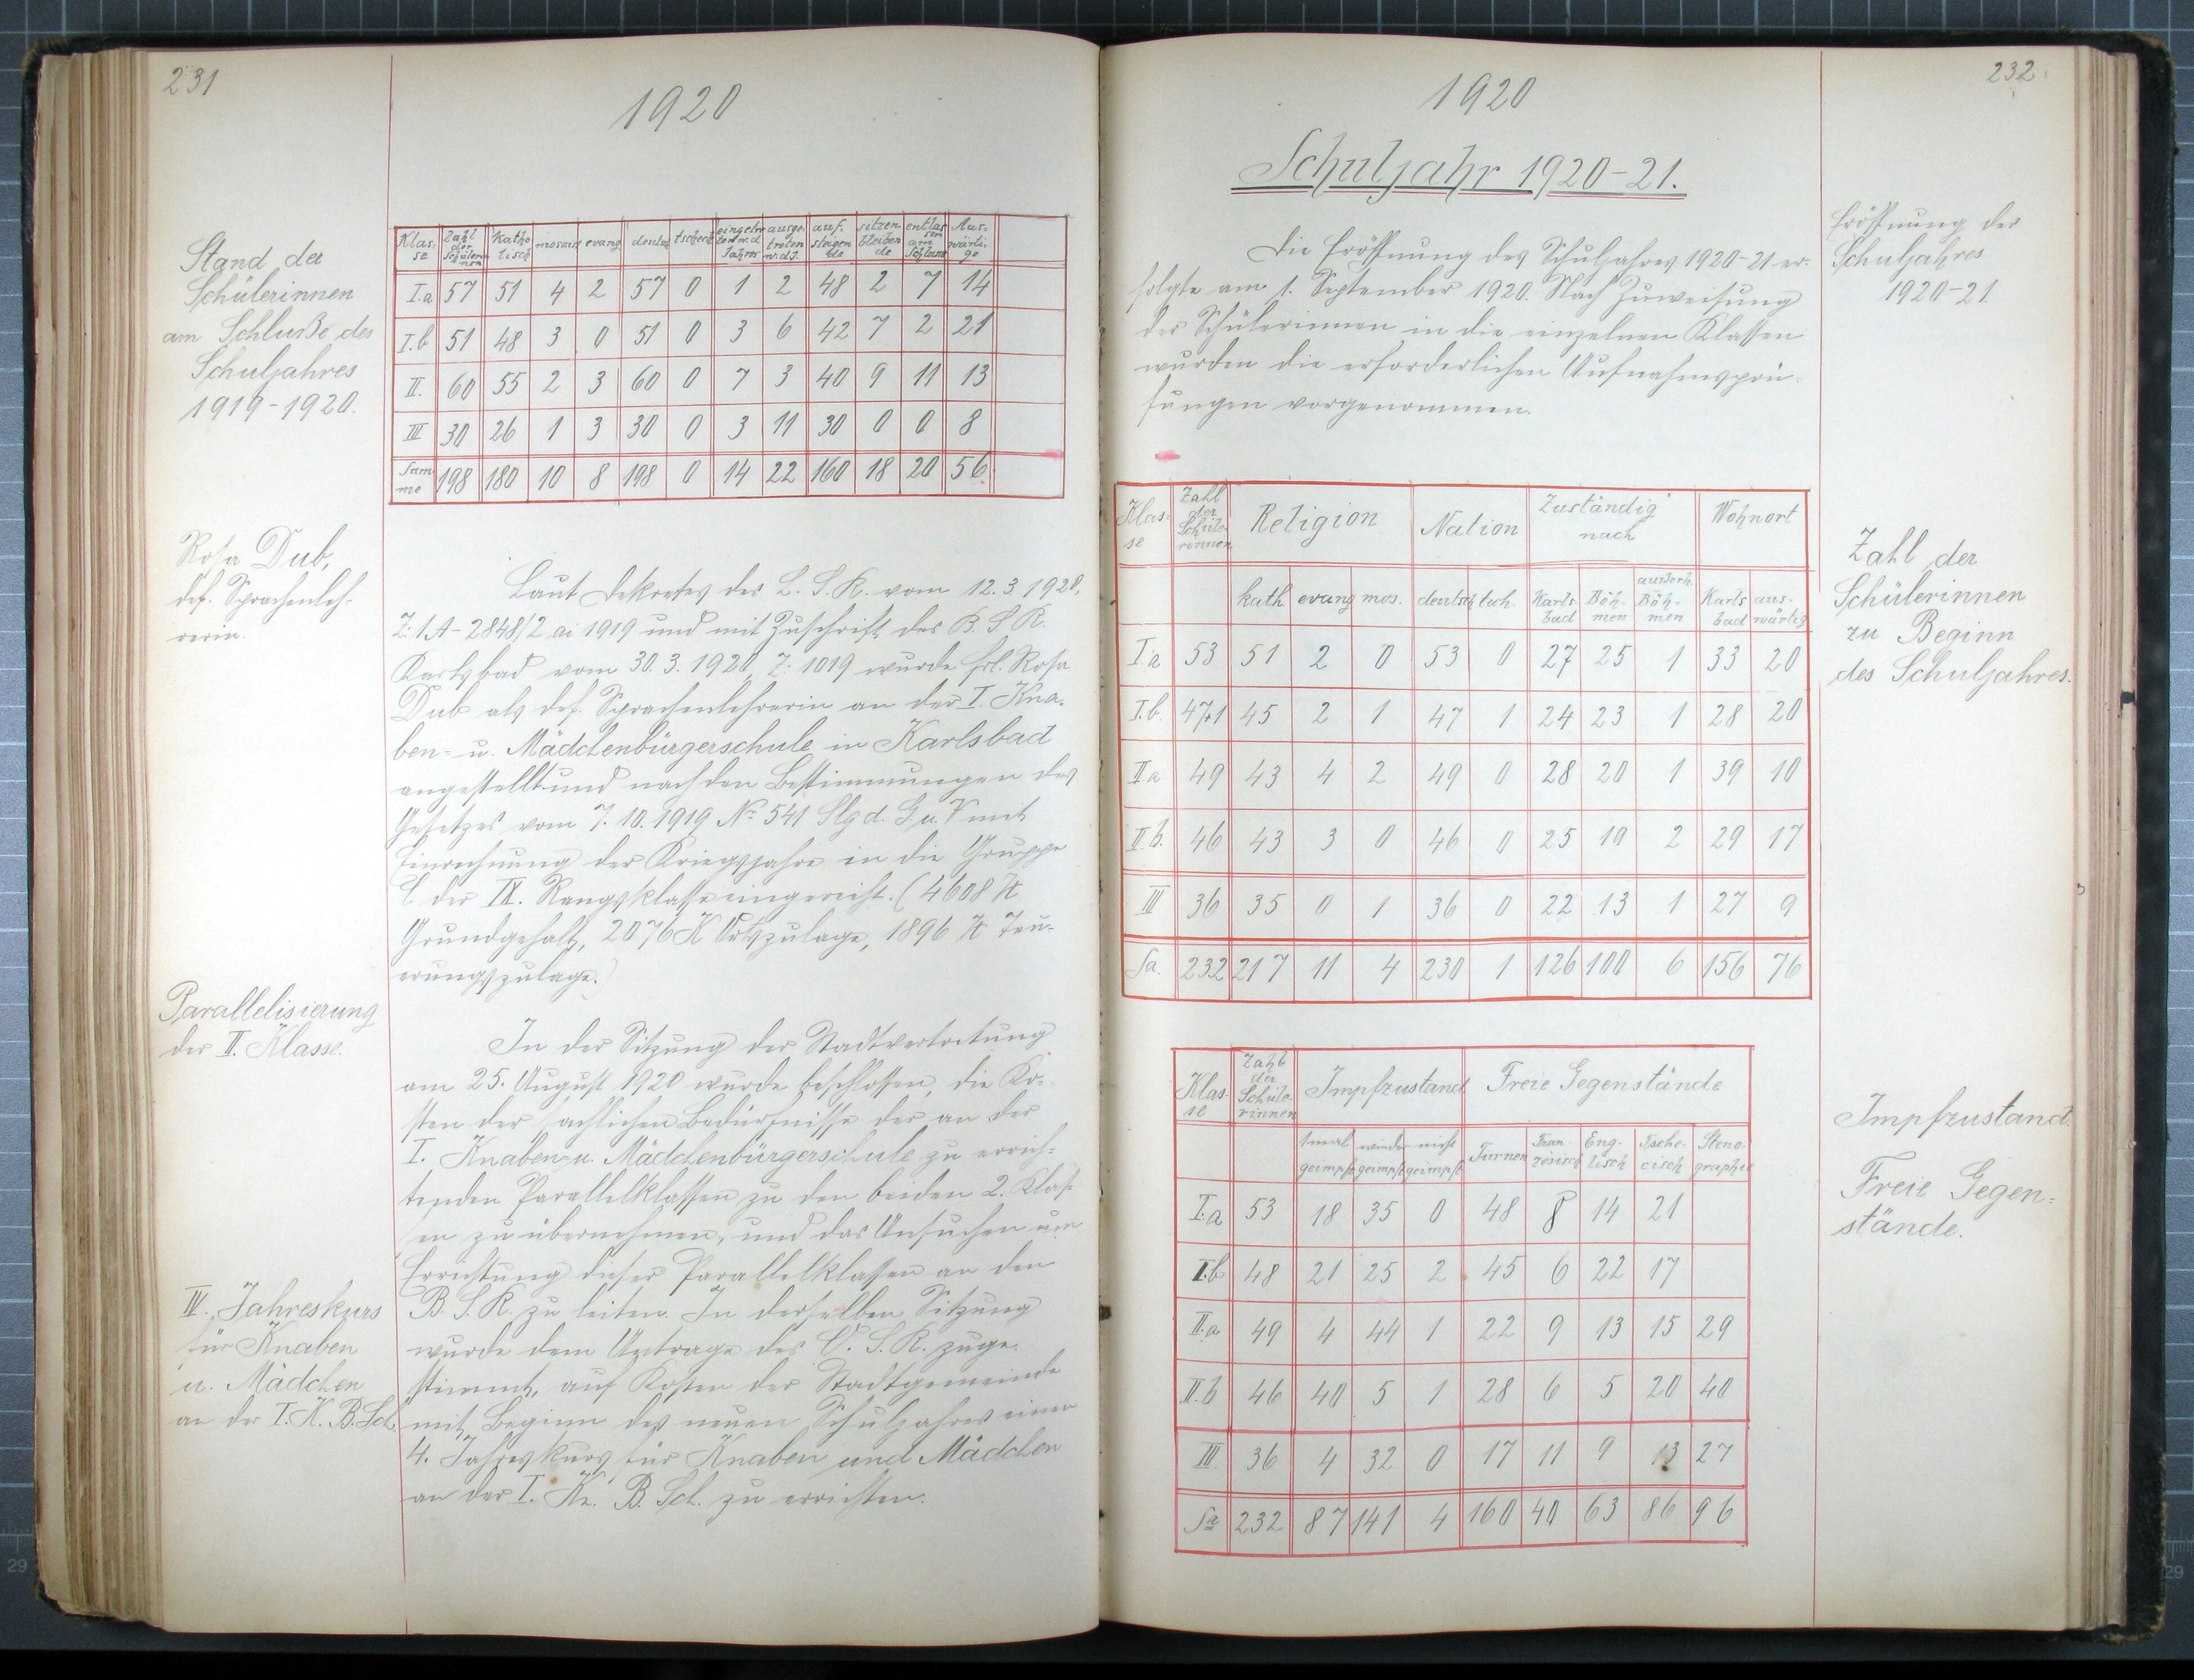 231
1920
Stand der
Schülerinnen
am Schluße des
Schuljahres
1919-1920.
Klas- Zahl Katho mosaisch evang deutsch tschech eingetre ausge- auf- sitzen- entlas Aus-
se der lisch ten w.d. treten steigen bleiben sen wärti-
Schüler Jahres w.d.J. de de am ge
innen Schlusse
I.a 57 51 4 2 57 0 1 2 48 2 7 14
I.b 51 48 3 0 51 0 3 6 42 7 2 21
II. 60 55 2 3 60 0 7 3 40 9 11 13
III 30 26 1 3 30 0 3 11 30 0 0 8
Sum
me 198 180 10 8 198 0 14 22 160 18 20 56
Rosa Dub,
def. Sprachenleh-
rerin.
Laut Dekretes des L. S. R. vom 12.3.1920,
Z: I A - 2848/2 ai 1919 und mit Zuschrift des B. S. R.
Karlsbad vom 30. 3. 1920, Z: 1019 wurde Frl. Rosa
Dub als def. Sprachenlehrerin an der I. Kna-
ben- u. Mädchenbürgerschule in Karlsbad
angestellt und nach den Bestimmungen des
Gesetzes vom 7. 10. 1919 No 541 Slg d. G. u. V mit
Einrechnung der Kriegsjahre in die Gruppe
C der IX. Rangsklasse eingereiht. (4608 K
Grundgehalt, 2076 K Ortszulage, 1896 K Teu-
erungszulage.)
Parallelisierung
der II. Klasse.
In der Sitzung der Stadtvertretung
am 25. August 1920 wurde beschlossen, die Ko-
sten der sachlichen Bedürfnisse der an der
I. Knaben- u. Mädchenbürgerschule zu errich-
tenden Parallelklassen zu den beiden 2. Klas-
sen zu übernehmen, und das Ansuchen um
Errichtung dieser Parallelklassen an den
B. S. R. zu leiten. In derselben Sitzung
wurde dem Antrage des O. S. R. zuge-
stimmt, auf Kosten der Stadtgemeinde
mit Beginn des neuen Schuljahres einen
4. Jahreskurs für Knaben und Mädchen
an der I. Kn. B. Sch. zu errichten.
IV. Jahreskurs
für Knaben
u. Mädchen
an der I. K. B. Sch.
232
1920
Schuljahr 1920-21.
Eröffnung des
Schuljahres
1920-21.
Die Eröffnung des Schuljahres 1920-21 er-
folgte am 1. September 1920. Nach Zuweisung
der Schülerinnen in die einzelnen Klassen
wurden die erforderlichen Aufnahmsprü-
fungen vorgenommen.
Zahl der
Schülerinnen
zu Beginn
des Schuljahres.
Klas- Zahl Religion Nation Zuständig Wohnort
se der nach
Schüle-
rinnen
kath. evang mos. deutsch tsch. Karls- Böh- ausserh. Karls aus-
bad men Böh- bad wärtig
men
I.a 53 51 2 0 53 0 27 25 1 33 20
I.b. 47+1 45 2 1 47 1 24 23 1 28 20
II a 49 43 4 2 49 0 28 20 1 39 10
II b. 46 43 3 0 46 0 25 19 2 29 17
III 36 35 0 1 36 0 22 13 1 27 9
Sa. 232 217 11 4 230 1 126 100 6 156 76
Impfzustand.
Freie Gegen-
stände.
Klas- Zahl Impfzustand Freie Gegenstände
se der
Schüle-
rinnen
1mal wieder nicht Turnen Fran- Eng- Tsche- Steno-
geimpft geimpft geimpft zösisch lisch chisch graphie
I.a 53 18 35 0 48 8 14 21
I.b 48 21 25 2 45 6 22 17
II.a 49 4 44 1 22 9 13 15 29
II.b 46 40 5 1 28 6 5 20 40
III. 36 4 32 0 17 11 9 13 27
Sa 232 87 141 4 160 40 63 86 96
29
29